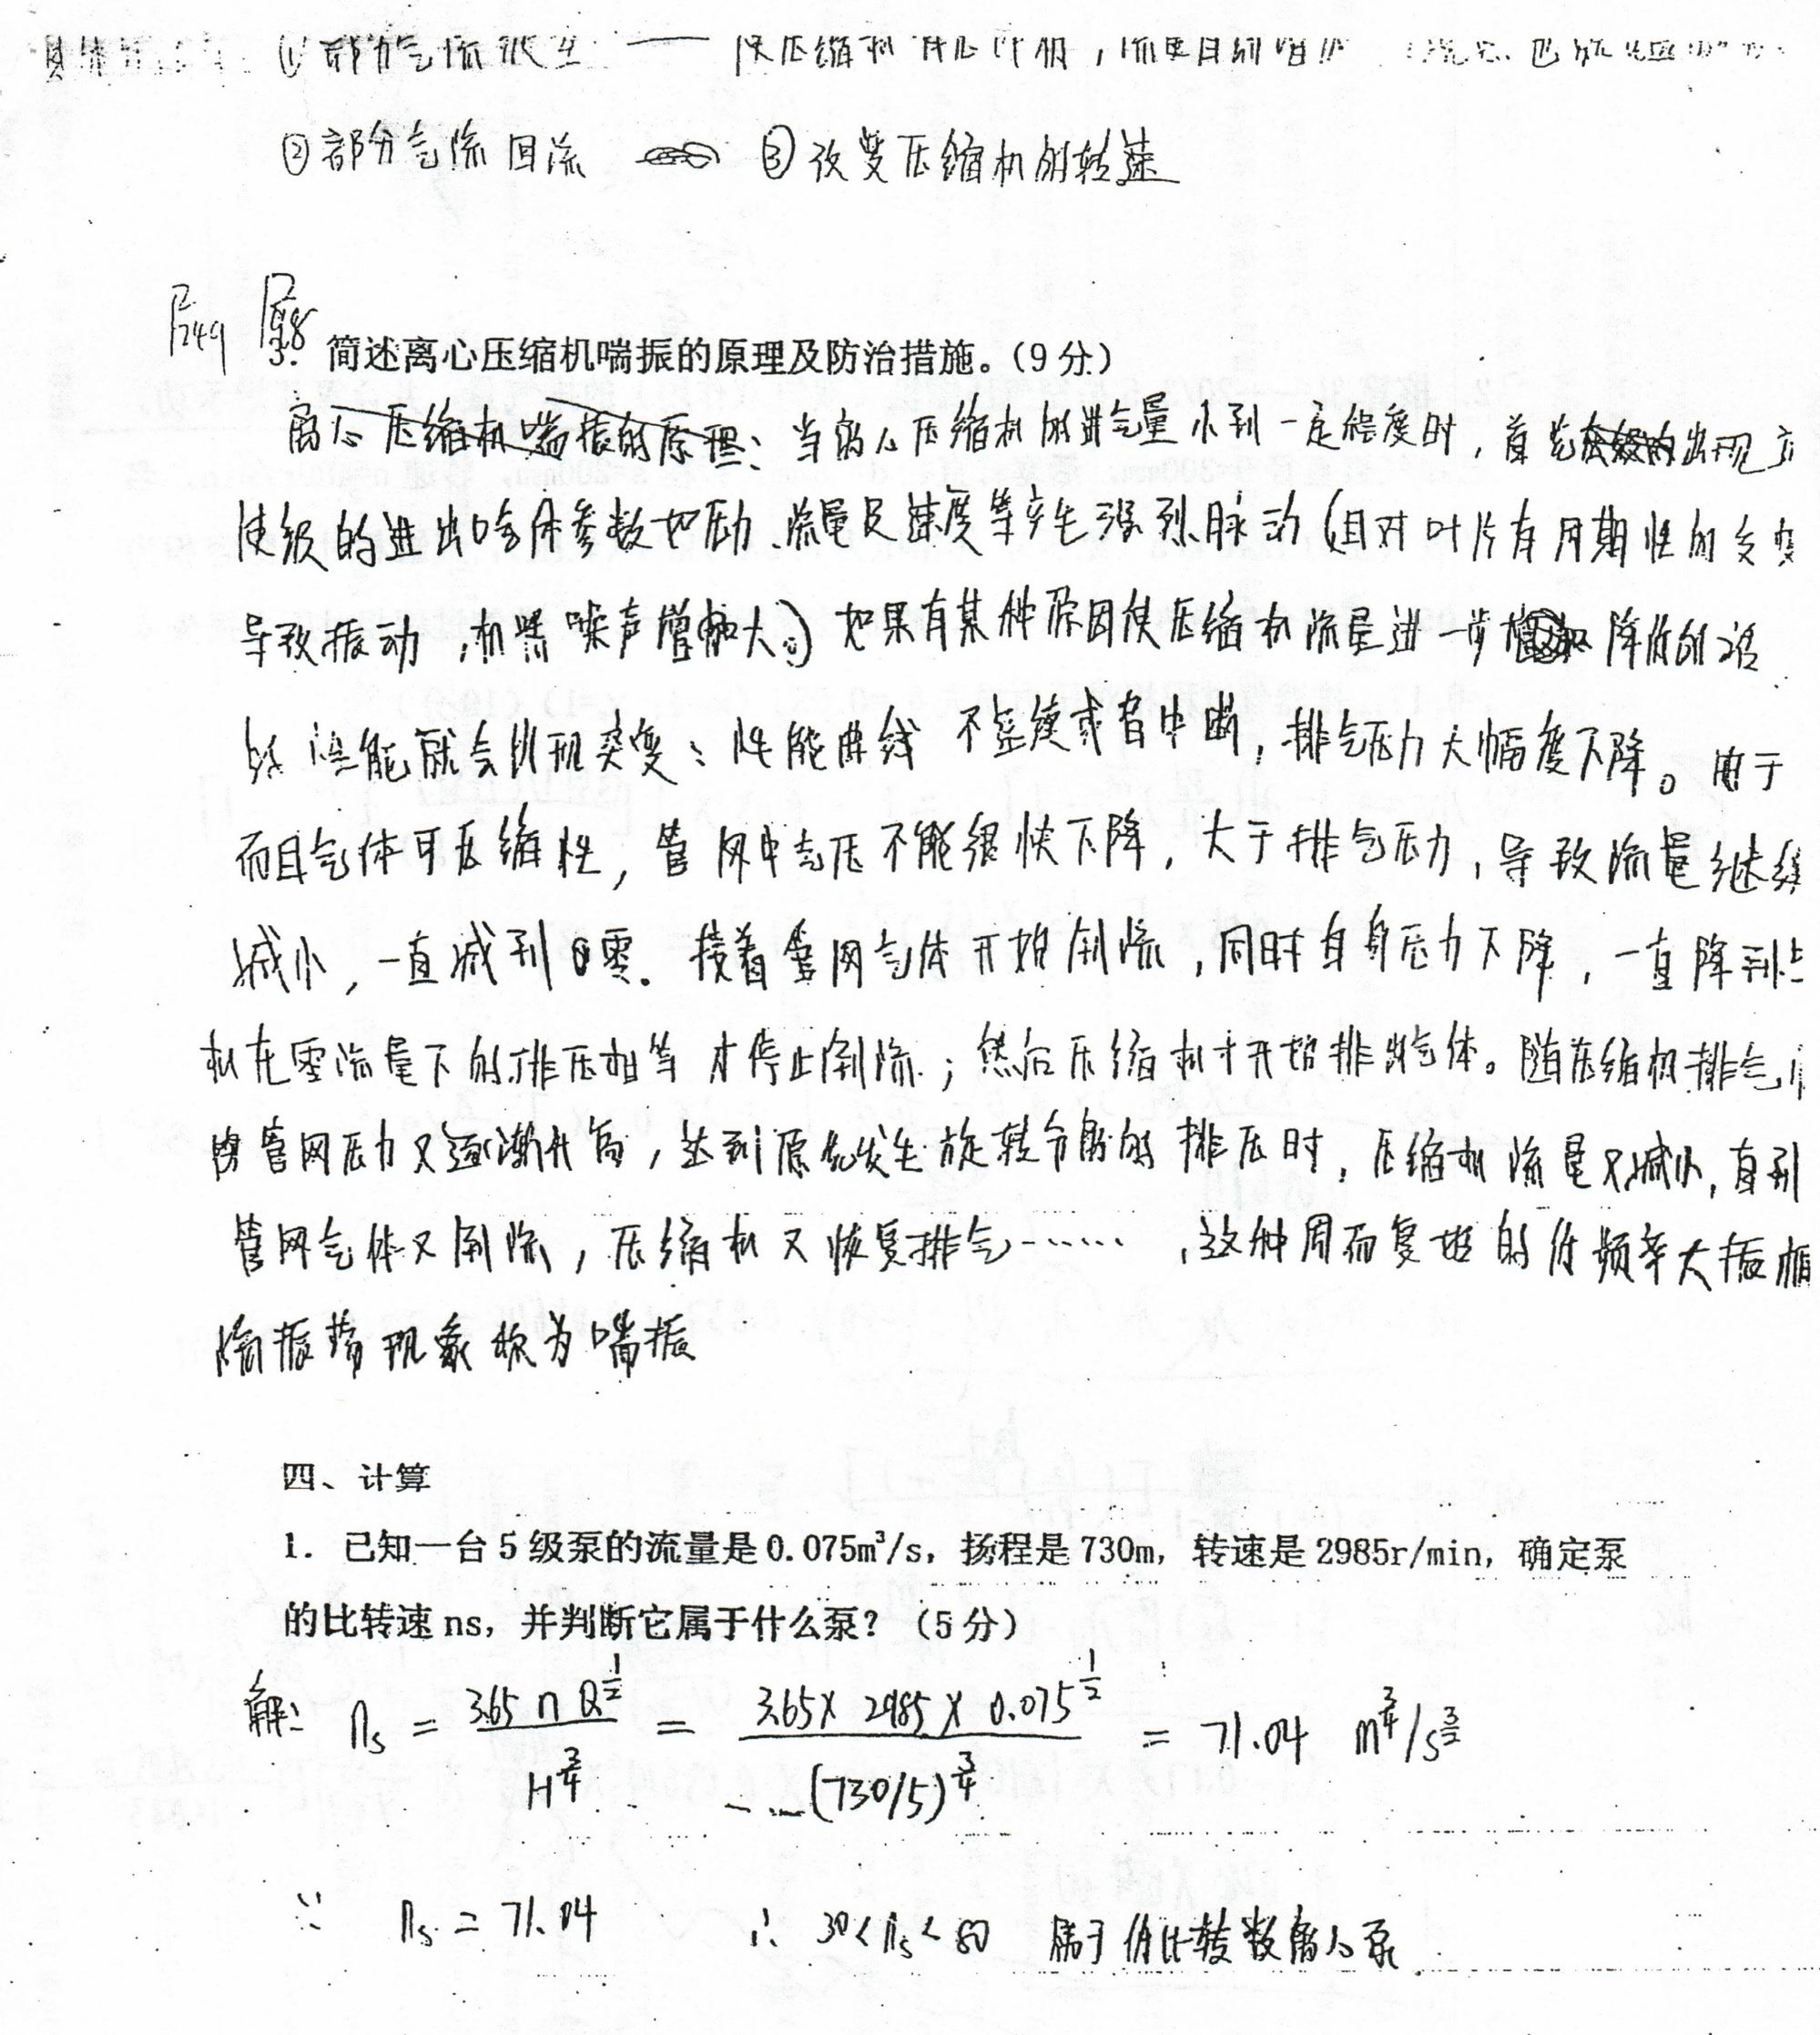 ②部分气流回流 ③改变压缩机的转速
P249 P248
3. 简述离心压缩机喘振的原理及防治措施。(9分)
离心压缩机喘振的原理: 当离心压缩机的进气量小到一定程度时, 首先出现
使级的进出口气体参数如压力、流量及速度等产生强烈脉动(且对叶片有周期性的交变
导致振动, 机器噪声增加大。) 如果有某种原因使压缩机流量进一步降低的话
性能就会出现突变: 性能曲线不连续或者中断, 排气压力大幅度下降。由于
而且气体可压缩性, 管网中气压不能很快下降, 大于排气压力, 导致流量继续
减小, 一直减到零. 接着管网气体开始倒流, 同时自身压力下降, 一直降到与
机在零流量下的排压相等才停止倒流; 然后压缩机才开始排出气体。随压缩机排气,
管网压力又逐渐升高, 达到原先发生旋转分离的排压时, 压缩机流量又减小, 直到
管网气体又倒流, 压缩机又恢复排气…… ,这种周而复始的低频率大振幅
振荡现象称为喘振
四、计算
1. 已知一台5级泵的流量是0.075m³/s, 扬程是730m, 转速是2985r/min, 确定泵
的比转速ns, 并判断它属于什么泵? (5分)
解: ns = 3.65 n Q^½ / H^¾ = 3.65 × 2985 × 0.075^½ / (730/5)^¾ = 71.04 m^¾/s^{3/2}
∵ ns = 71.04 ∴ 30 < ns < 80 属于低比转数离心泵